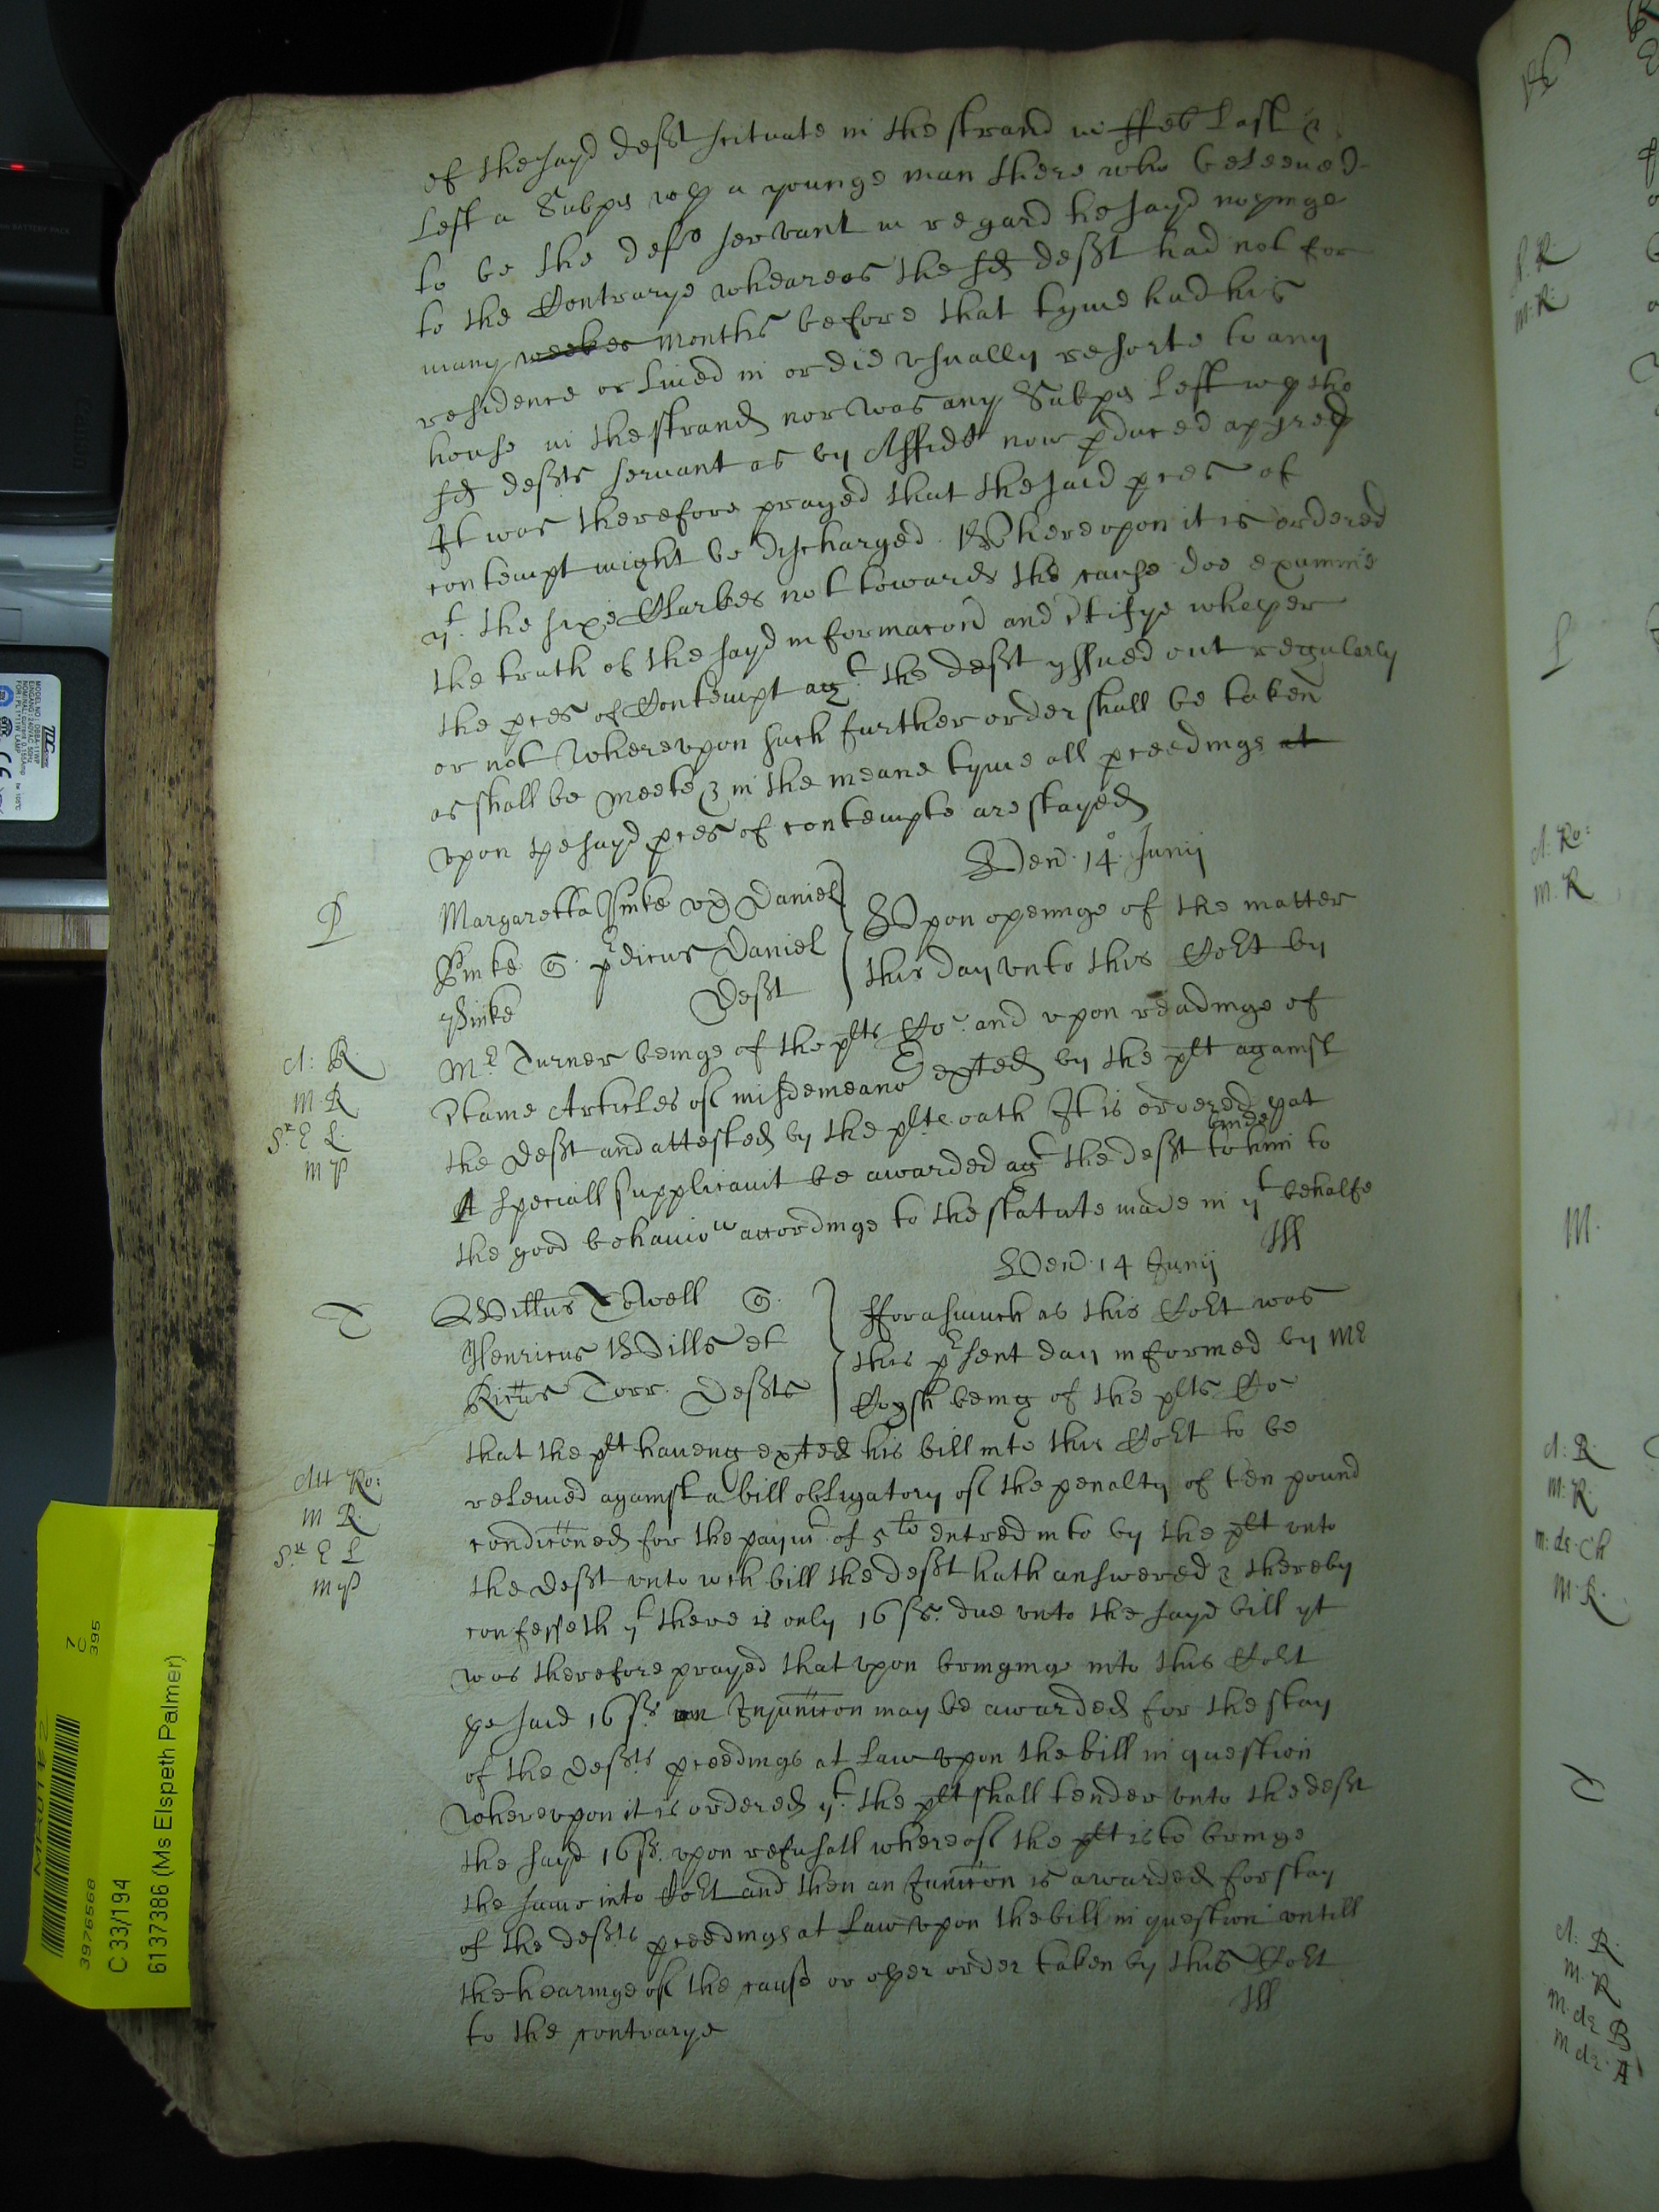 of the sayd deft scituate in the strand in ffeb last &
left a Subpa wth a younge man there who beleeued
to be the defts servant in regard he sayd nothinge
to the Contrarye wheareas the sd deft had not for
many weekes months before that tyme had his
residence or liued in or did vsually resorte to any
house in the strand nor was any Subpa left wth the
sd defts servant as by Affidt now pduced apyreth
It was therefore prayed that the said pces of
contempt might be discharged Whereupon it is ordered
yt the sixe Clarkes not towards the cause doe examine
the truth of the sayd informacon and Ctifye whether
the pces of Contempt agt the deft yssued out regularly
or not Wherevpon such further order shall be taken
as shall be meete & in the meane tyme all pceedings at
vpon the sayd pces of contempte are stayed
Wen 14o Junij
P
Margaretta Pinke vx Daniel
Pinke q prdicus Daniel
Pinke Deft
Vpon openinge of the matter
this day vnto this Cort by
A: R
m R
Sr E L
m P
Mr Turner beinge of the plts Co and vpon readinge of
Ctaine Articles of misdemeanor exted by the plt against
the Deft and attested by the plts oath It is ordered yat
A speciall supplicauit be awarded agt the deft to binde him to
the good behauior accordinge to the statute made in yt behalfe
Wen 14 Junij
T
Willus Towell q
Henricus Wills et
Ricus Torr Defts
fforasmuch as this Cort was
this prsent day informed by Mr
being of the plts Co
Att Ro:
m R
Sr E L
m P
that the plt haueng exted his bill into this Cort to be
releiued against a bill obligatory of the penalty of ten pound
condiconed for the paymt of 5li entred into by the plt vnto
the Deft vnto wch bill the deft hath answered & thereby
confesseth yt there is only 16 ss. due vnto the sayd bill yt
was therefore prayed that vpon bringing into this Cort
ye said 16 ss an Injunccon may be awarded for the stay
of the Defts pceedings at law vpon the bill in question
Wherevpon it is ordered yt the plt shall tender vnto the deft
the sayd 16ss. vpon refusall whereof the plt is to bringe
the same into Cort and then an Junccon is awarded for stay
of the defts pceedings at law vpon the bill in question vntill
the hearinge of the cause or other order taken by this Cort
to the contrarye
C 33/194
6137386 (Ms Elspeth Palmer)
3976568
7
C
395